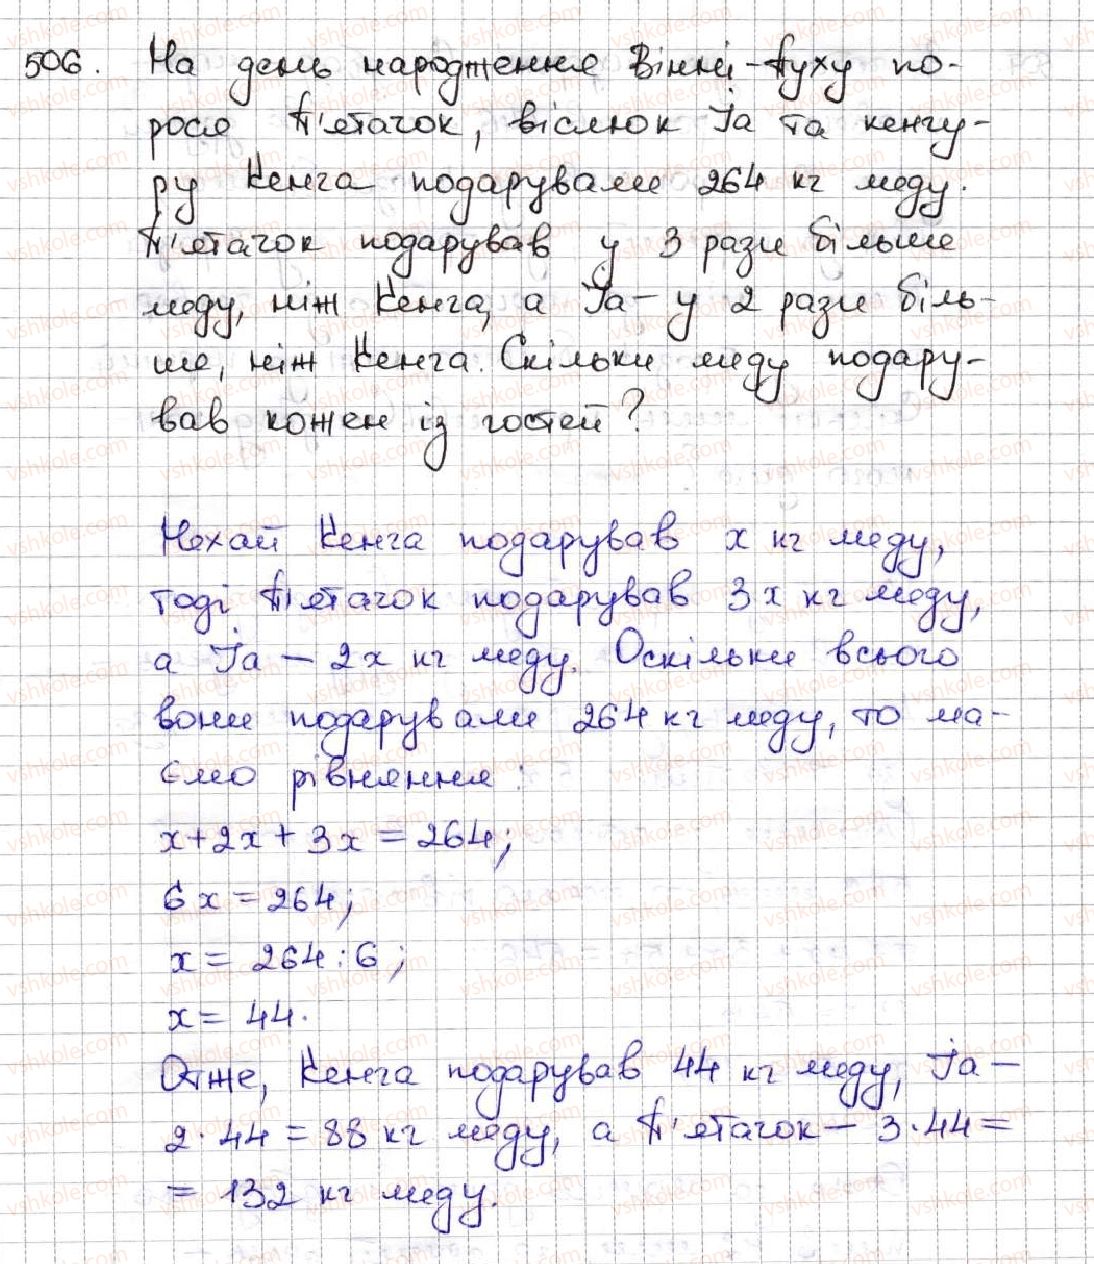 506. На день народження Вінні-Пуху по-
рося П'ятачок, віслюк Іа та кенгу-
ру Кенга подарували 264 кг меду.
П'ятачок подарував у 3 рази більше
меду, ніж Кенга, а Іа - у 2 рази біль-
ше, ніж Кенга. Скільки меду подару-
вав кожен із гостей?
Нехай Кенга подарував x кг меду,
тоді П'ятачок подарував 3x кг меду,
а Іа - 2x кг меду. Оскільки всього
вони подарували 264 кг меду, то ма-
ємо рівняння:
x+2x+3x=264;
6x=264;
x=264:6;
x=44.
Отже, Кенга подарував 44 кг меду, Іа -
2·44=88 кг меду, а П'ятачок - 3·44=
=132 кг меду.